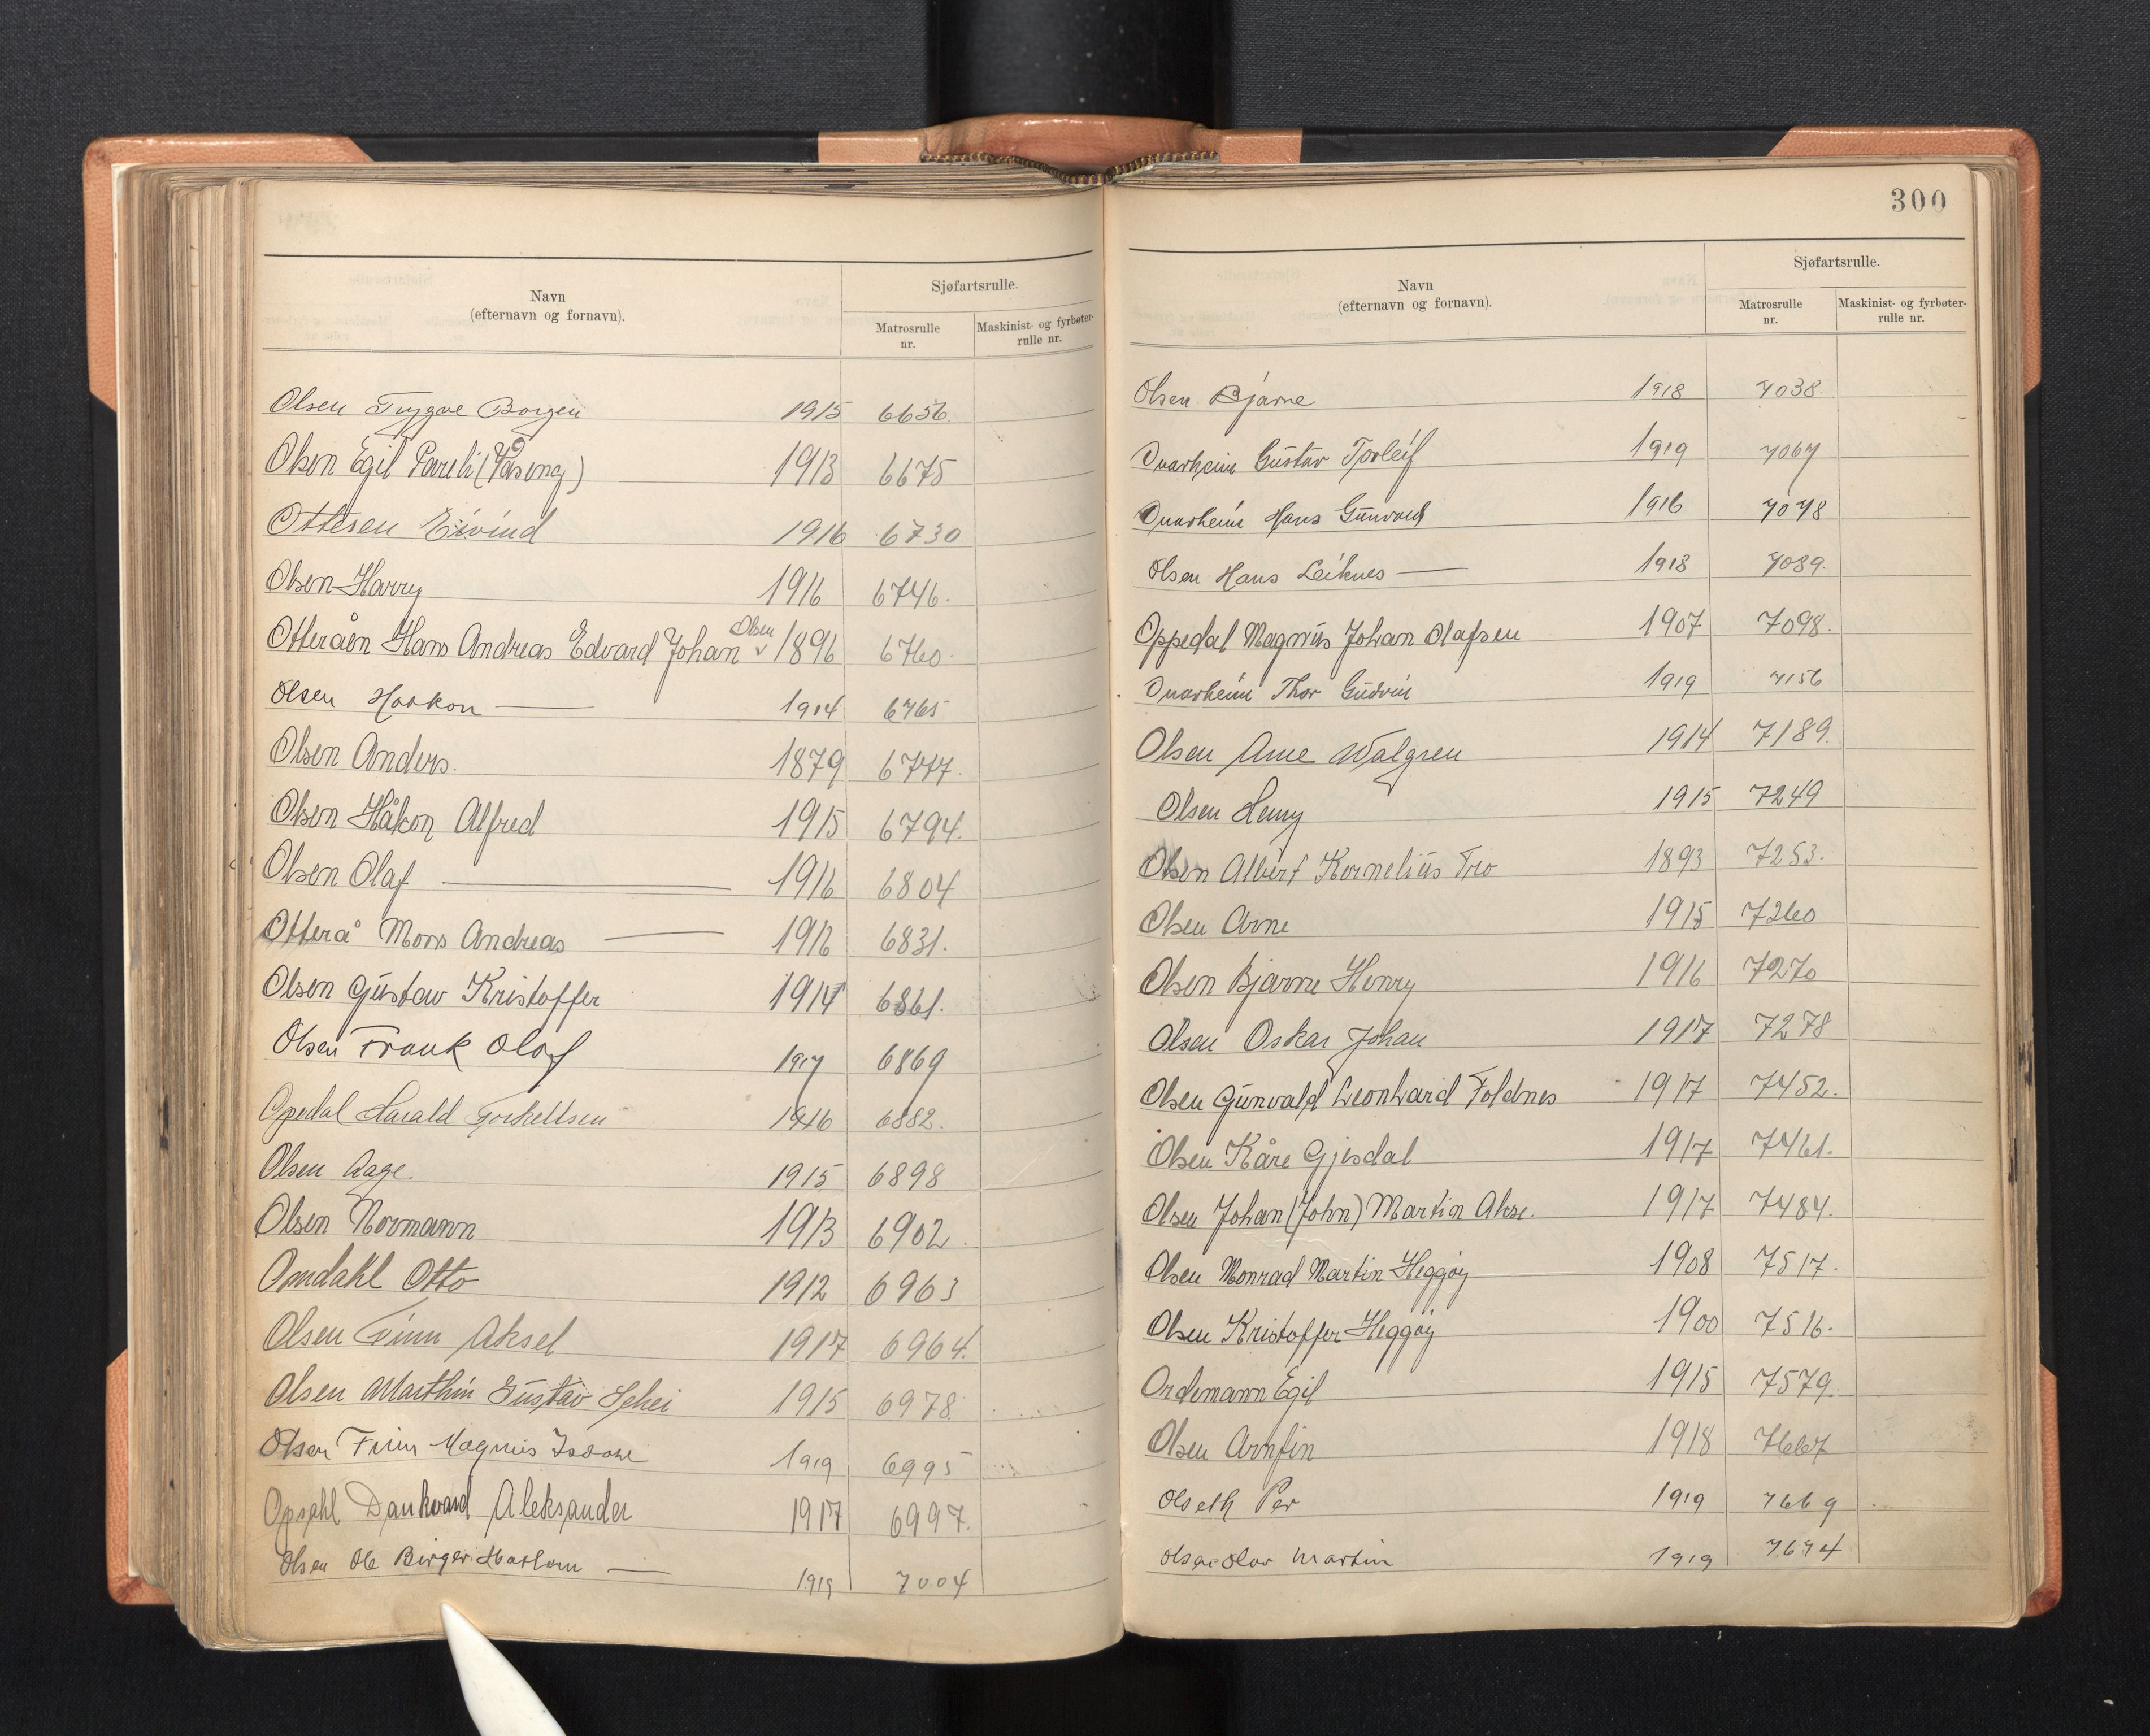 Navn
(efternavn og fornavn).
Sjøfartsrulle.
Matrosrulle
nr.
Maskinist- og fyrbøter-
rulle nr.
Olsen Tryggve Borgen 1915 6656.
Olsen Egil Pareli ( ) 1913 6675
Ottesen Eivind 1916 6730
Olsen Harry 1916 6746.
Olsen
Otteråen Hans Andreas Edvard Johan v 1896 6760.
Olsen Haakon 1914 6765
Olsen Anders. 1879 6777.
Olsen Håkon Alfred 1915 6794.
Olsen Olaf 1916 6804
Otterå Mons Andreas 1916 6831.
Olsen Gustav Kristoffer 1914 6861.
Olsen Frank Olaf 1917 6869
Opedal Harald Torkellsen 1916 6882.
Olsen Aage. 1915 6898
Olsen Normann 1913 6902.
Omdahl Otto 1912 6963
Olsen Finn Aksel 1917 6964.
Olsen Marthin Gustav 1915 6978
Olsen Finn Magnus 1919 6995
Opsahl Dankvard Aleksander 1917 6997.
Olsen Ole Birger 1919 7004
300
Navn
(efternavn og fornavn).
Sjøfartsrulle.
Matrosrulle
nr.
Maskinist- og fyrbøter-
rulle nr.
Olsen Bjarne 1918 7038
Gustav Torleif 1919 7067
Hans Gunvald 1916 7078
Olsen Hans Leiknes 1918 7089.
Oppedal Magnus Johan Olafsen 1907 7098.
Thor Gudvin 1919 7156
Olsen Arne Walgren 1914 7189.
Olsen Henry 1915 7249
Olsen Albert Kornelius Tro 1893 7253.
Olsen Arne 1915 7260
Olsen Bjarne Henry 1916 7270
Olsen Oskar Johan 1917 7278
Olsen Gunvald Leonhard Foldnes 1917 7452.
Olsen Kåre Gjesdal 1917 7461.
Olsen Johan (John) Martin 1917 7484.
Olsen Monrad Martin Heggøy 1908 7517.
Olsen Kristoffer Heggøy 1900 7516.
Ordemann Egil 1915 7579.
Olsen Arnfin 1918 7667
Olseth Per 1919 7669
Olav Martin 1919 7694